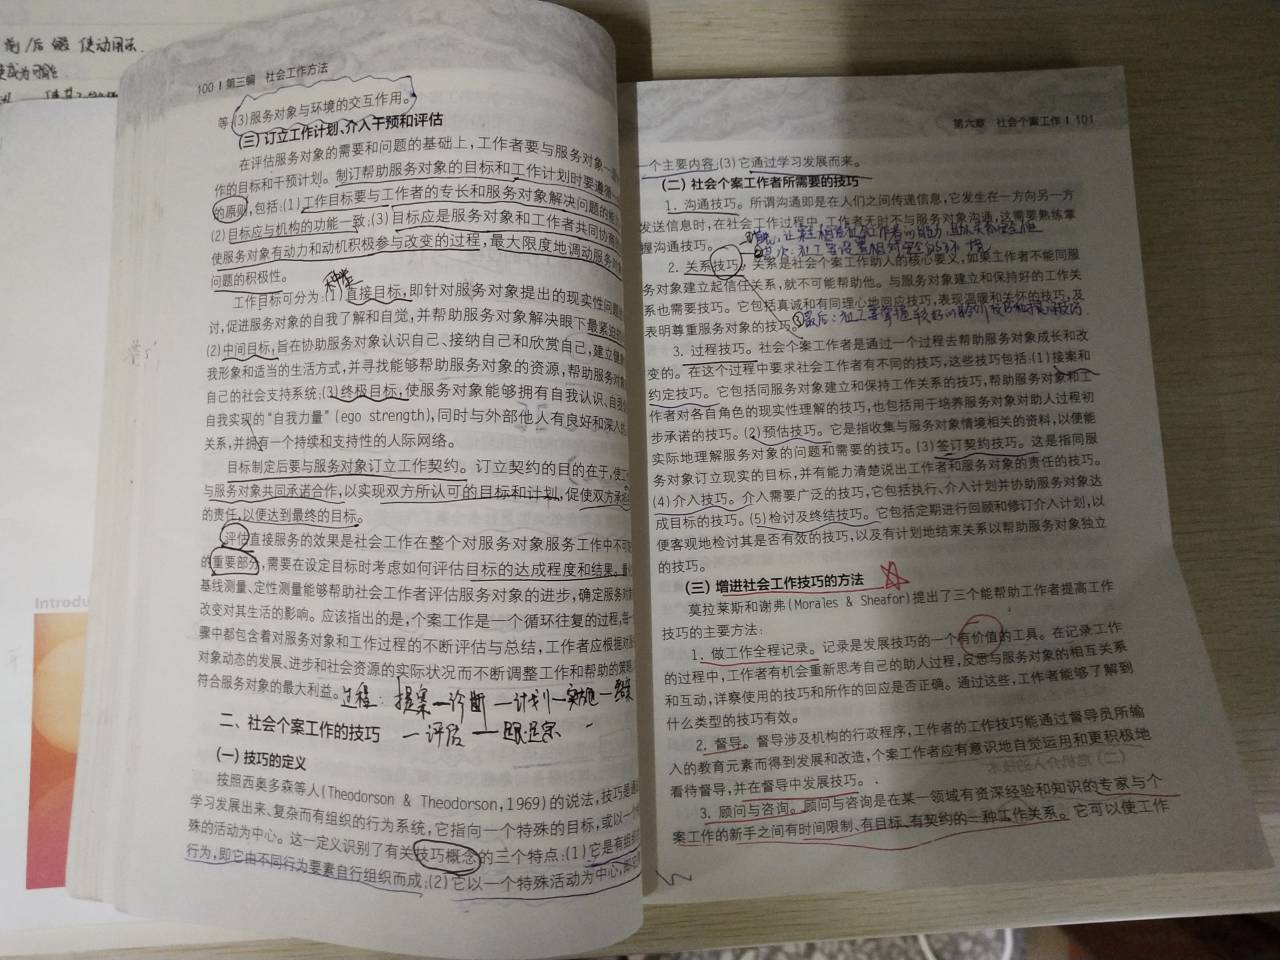 前/后缀 使动用法.
100 | 第三编 社会工作方法
等;(3)服务对象与环境的交互作用。
(三) 订立工作计划、介入干预和评估
在评估服务对象的需要和问题的基础上,工作者要与服务对象一
作的目标和干预计划。制订帮助服务对象的目标和工作计划时要遵循
的原则,包括:(1)工作目标要与工作者的专长和服务对象解决问题的能
(2)目标应与机构的功能一致;(3)目标应是服务对象和工作者共同协商
使服务对象有动力和动机积极参与改变的过程,最大限度地调动服务对
问题的积极性。
种类
工作目标可分为:(1)直接目标,即针对服务对象提出的现实性问题
讨,促进服务对象的自我了解和自觉,并帮助服务对象解决眼下最紧迫的
(2)中间目标,旨在协助服务对象认识自己、接纳自己和欣赏自己,建立健
我形象和适当的生活方式,并寻找能够帮助服务对象的资源,帮助服务对
自己的社会支持系统;(3)终极目标,使服务对象能够拥有自我认识、自我
自我实现的“自我力量”(ego strength),同时与外部他人有良好和深入
关系,并拥有一个持续和支持性的人际网络。
目标制定后要与服务对象订立工作契约。订立契约的目的在于,使工
与服务对象共同承诺合作,以实现双方所认可的目标和计划,促使双方承
的责任,以便达到最终的目标。
评估直接服务的效果是社会工作在整个对服务对象服务工作中不可
的重要部分,需要在设定目标时考虑如何评估目标的达成程度和结果。
基线测量、定性测量能够帮助社会工作者评估服务对象的进步,确定服务对
改变对其生活的影响。应该指出的是,个案工作是一个循环往复的过程,每一
骤中都包含着对服务对象和工作过程的不断评估与总结,工作者应根据对
对象动态的发展、进步和社会资源的实际状况而不断调整工作和帮助的策略
符合服务对象的最大利益。过程: 接案—诊断—计划—实施—结案
二、社会个案工作的技巧 —评估—跟踪
(一) 技巧的定义
按照西奥多森等人(Theodorson & Theodorson,1969)的说法,技巧是通
学习发展出来、复杂而有组织的行为系统,它指向一个特殊的目标,或以一个
殊的活动为中心。这一定义识别了有关技巧概念的三个特点:(1)它是有组
行为,即它由不同行为要素自行组织而成;(2)它以一个特殊活动为中心,
Introdu
第六章 社会个案工作 | 101
一个主要内容;(3)它通过学习发展而来。
(二) 社会个案工作者所需要的技巧
1. 沟通技巧。所谓沟通即是在人们之间传递信息,它发生在一方向另一方
发送信息时,在社会工作过程中,工作者无时不与服务对象沟通,这需要熟练掌
握沟通技巧。
2. 关系技巧。关系是社会个案工作助人的核心要义,如果工作者不能同服
务对象建立起信任关系,就不可能帮助他。与服务对象建立和保持好的工作关
系也需要技巧。它包括真诚和有同理心地回应技巧,表现温暖和关怀的技巧,及
表明尊重服务对象的技巧。
3. 过程技巧。社会个案工作者是通过一个过程去帮助服务对象成长和改
变的。在这个过程中要求社会工作者有不同的技巧,这些技巧包括:(1)接案和
约定技巧。它包括同服务对象建立和保持工作关系的技巧,帮助服务对象和工
作者对各自角色的现实性理解的技巧,也包括用于培养服务对象对助人过程初
步承诺的技巧。(2)预估技巧。它是指收集与服务对象情境相关的资料,以便能
实际地理解服务对象的问题和需要的技巧。(3)签订契约技巧。这是指同服
务对象订立现实的目标,并有能力清楚说出工作者和服务对象的责任的技巧。
(4)介入技巧。介入需要广泛的技巧,它包括执行、介入计划并协助服务对象达
成目标的技巧。(5)检讨及终结技巧。它包括定期进行回顾和修订介入计划,以
便客观地检讨其是否有效的技巧,以及有计划地结束关系以帮助服务对象独立
的技巧。
(三) 增进社会工作技巧的方法
莫拉莱斯和谢弗(Morales & Sheafor)提出了三个能帮助工作者提高工作
技巧的主要方法:
1. 做工作全程记录。记录是发展技巧的一个有价值的工具。在记录工作
的过程中,工作者有机会重新思考自己的助人过程,反思与服务对象的相互关系
和互动,详察使用的技巧和所作的回应是否正确。通过这些,工作者能够了解到
什么类型的技巧有效。
2. 督导。督导涉及机构的行政程序,工作者的工作技巧能通过督导员所输
入的教育元素而得到发展和改造,个案工作者应有意识地自觉运用和更积极地
看待督导,并在督导中发展技巧。
3. 顾问与咨询。顾问与咨询是在某一领域有资深经验和知识的专家与个
案工作的新手之间有时间限制、有目标、有契约的一种工作关系。它可以使工作